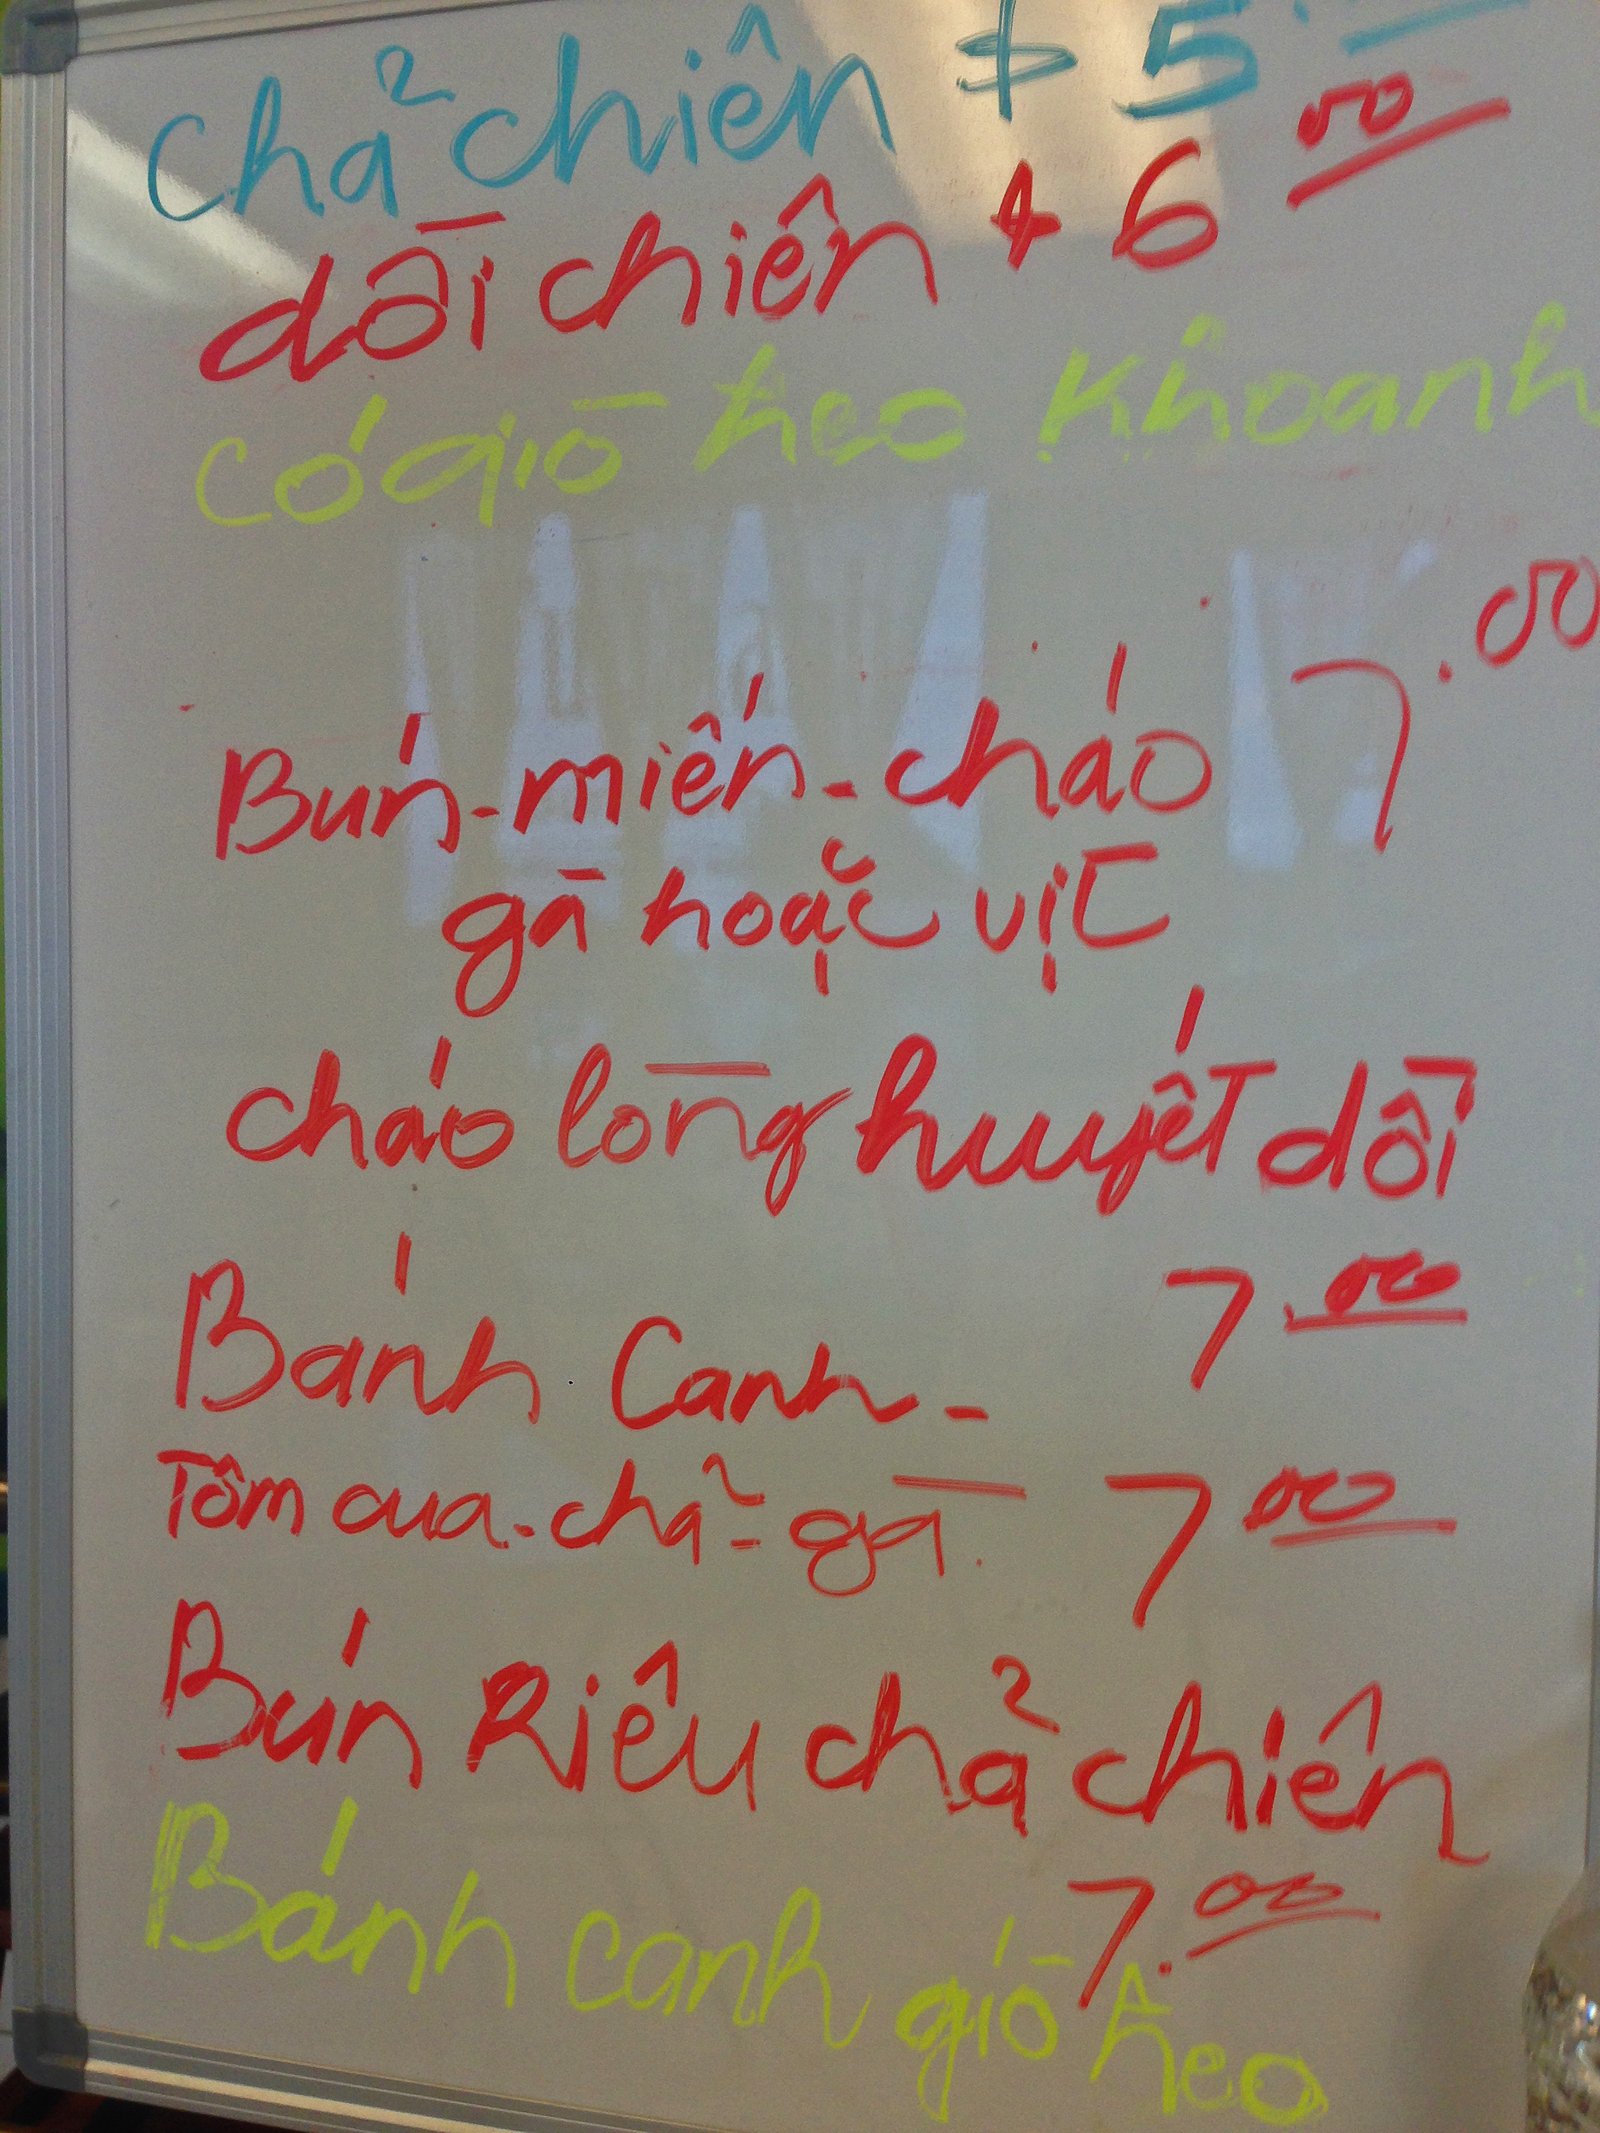 Chả chiên + 5.
dồi chiên + 6 00
có giò heo khoanh
Bún - miến - cháo 7.00
gà hoặc vịt
cháo lòng huyết dồi
7.00
Bánh Canh -
Tôm cua - chả - gà 7 00
Bún Riêu chả chiên
7.00
Bánh canh giò heo